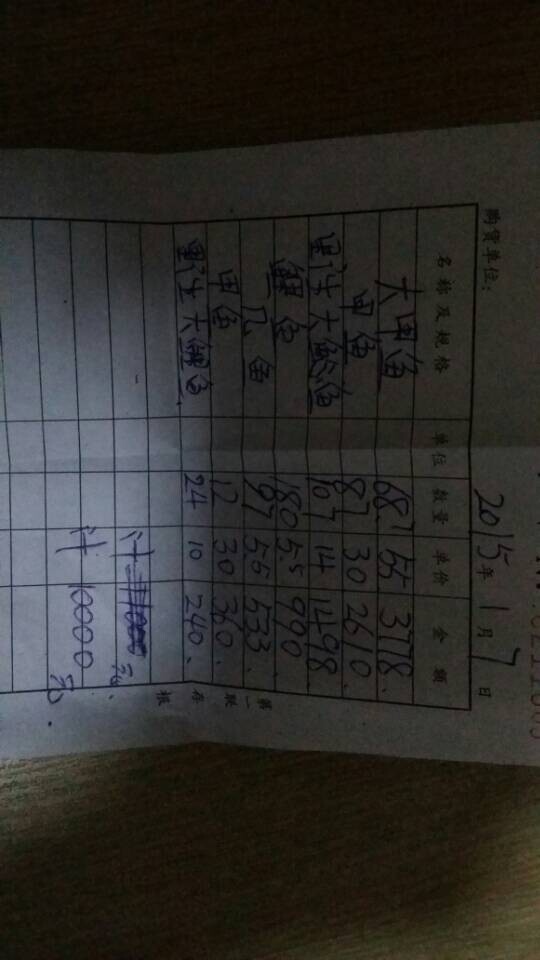 2015年1月7日
购货单位:
名称及规格 单位 数量 单价 金额
大甲鱼 68.7 55 3778.
甲鱼 87 30 2610.
野生大鲶鱼 107 14 1498.
鲤鱼 180 5.5 990
鱼 97 5.5 533.
甲鱼 12 30 360.
野生大鲤鱼. 24 10 240.
计 元.
计 10000元.
第一联 存根